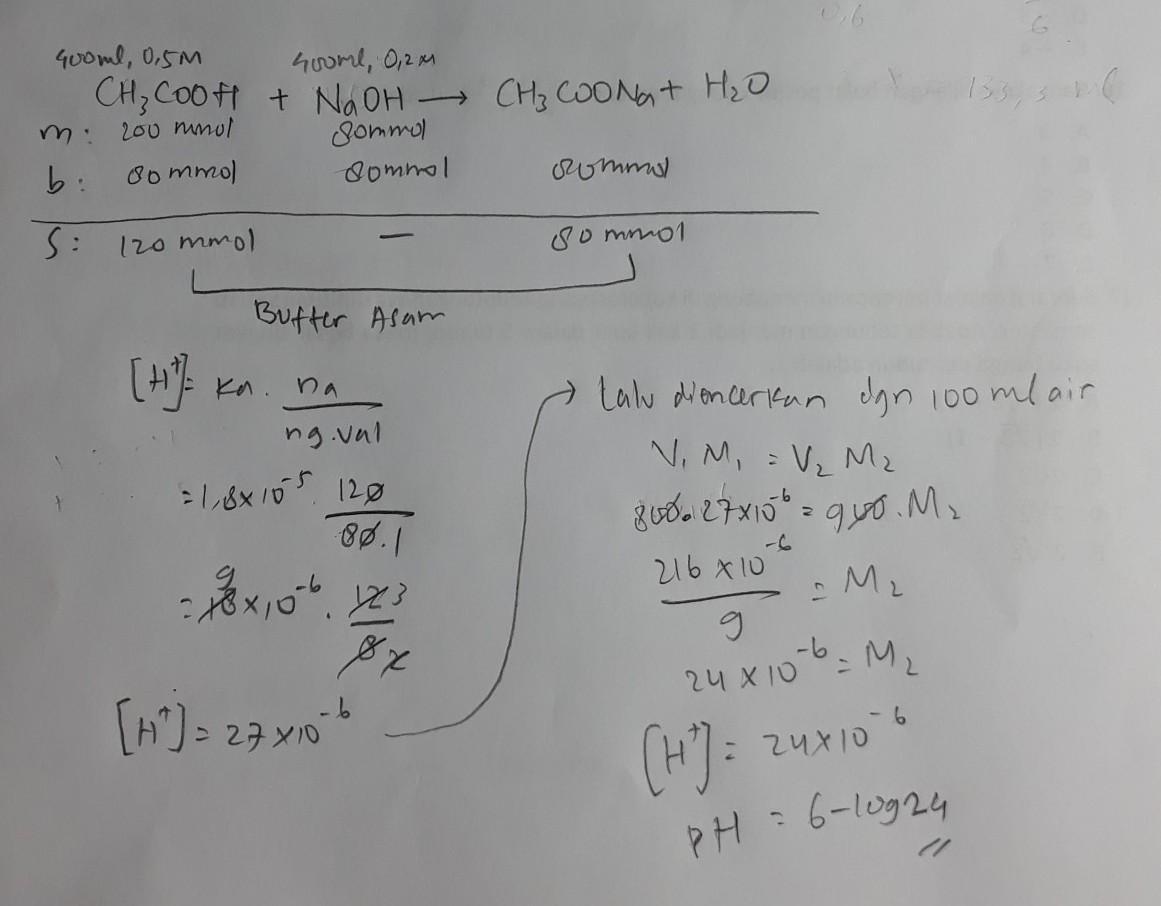 400ml, 0,5M 400ml, 0,2M
CH₃COOH + NaOH → CH₃COONa + H₂O
m: 200 mmol 80mmol
b: 80 mmol 80mmol 80mmol
S: 120 mmol — 80 mmol
Buffer Asam
[H⁺]= ka. na / ng.val
= 1,8x10⁻⁵. 120 / 80.1
= 18x10⁻⁶. 12 / 8 9 3 2
[H⁺] = 27x10⁻⁶
→ lalu diencerkan dgn 100 ml air
V₁ M₁ = V₂ M₂
800.27x10⁻⁶ = 900.M₂
216 x10⁻⁶ / 9 = M₂
24 x10⁻⁶ = M₂
[H⁺] = 24x10⁻⁶
pH = 6-log24
0,6
6